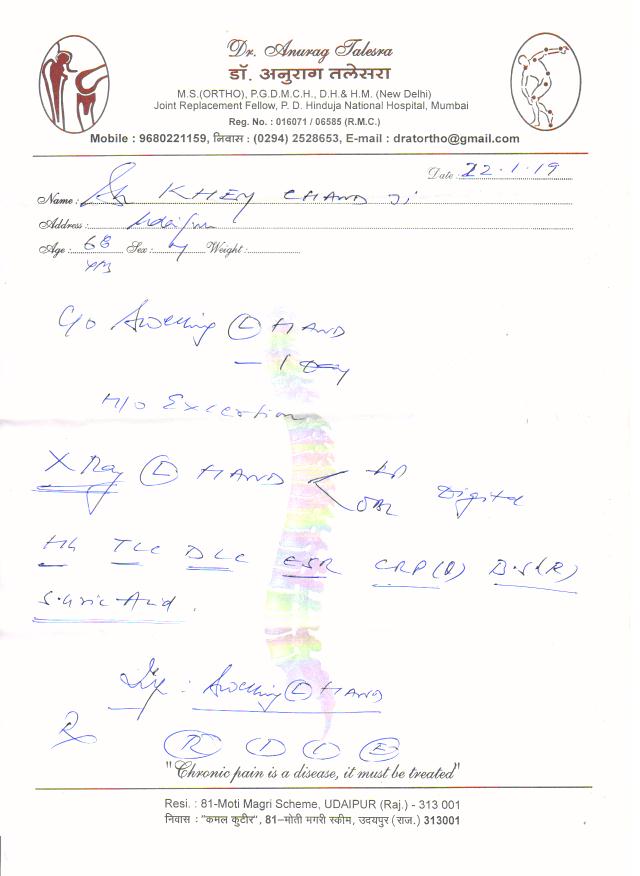 Dr. Anurag Talesra
डॉ. अनुराग तलेसरा
M.S.(ORTHO), P.G.D.M.C.H., D.H.& H.M. (New Delhi)
Joint Replacement Fellow, P. D. Hinduja National Hospital, Mumbai
Reg. No. : 016071 / 06585 (R.M.C.)
Mobile : 9680221159, निवास : (0294) 2528653, E-mail : dratortho@gmail.com
Date : 22.1.19
Name : Sh KHEM CHAND Ji
Address : Udaipur
Age : 68 Sex : M Weight :
yrs
C/o Swelling (L) HAND
- 1 Day
H/o Excertion
X Ray (L) HAND AP
OBL Digital
Hb TLC DLC ESR CRP (Q) B.S (R)
S. Uric Acid.
Dx : Swelling (L) HAND
Rx R I C E
"Chronic pain is a disease, it must be treated"
Resi. : 81-Moti Magri Scheme, UDAIPUR (Raj.) - 313 001
निवास : "कमल कुटीर", 81–मोती मगरी स्कीम, उदयपुर (राज.) 313001